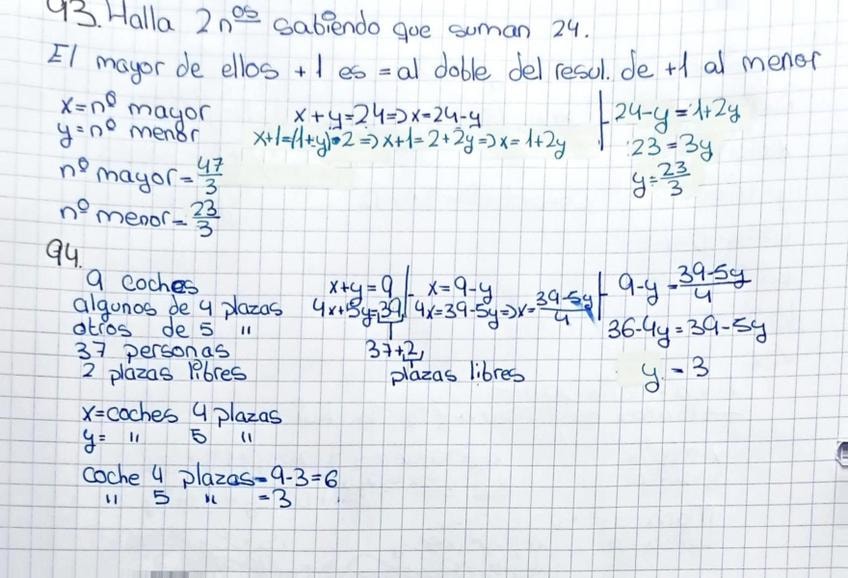 93. Halla 2 nos sabiendo que suman 24.
El mayor de ellos +1 es = al doble del resul. de +1 al menor
x=nº mayor
y=nº menor
nº mayor = 47/3
nº menor = 23/3
x+y=24=>x=24-y
x+1=(1+y)·2 => x+1=2+2y => x=1+2y
24-y=1+2y
23=3y
y=23/3
94.
9 coches
algunos de 4 plazas
otros de 5 "
37 personas
2 plazas libres
x+y=9
4x+5y=39
37+2
plazas libres
x=9-y
4x=39-5y=>x=39-5y/4
9-y=39-5y/4
36-4y=39-5y
y=3
x=coches 4 plazas
y= " 5 "
coche 4 plazas=9-3=6
" 5 " =3